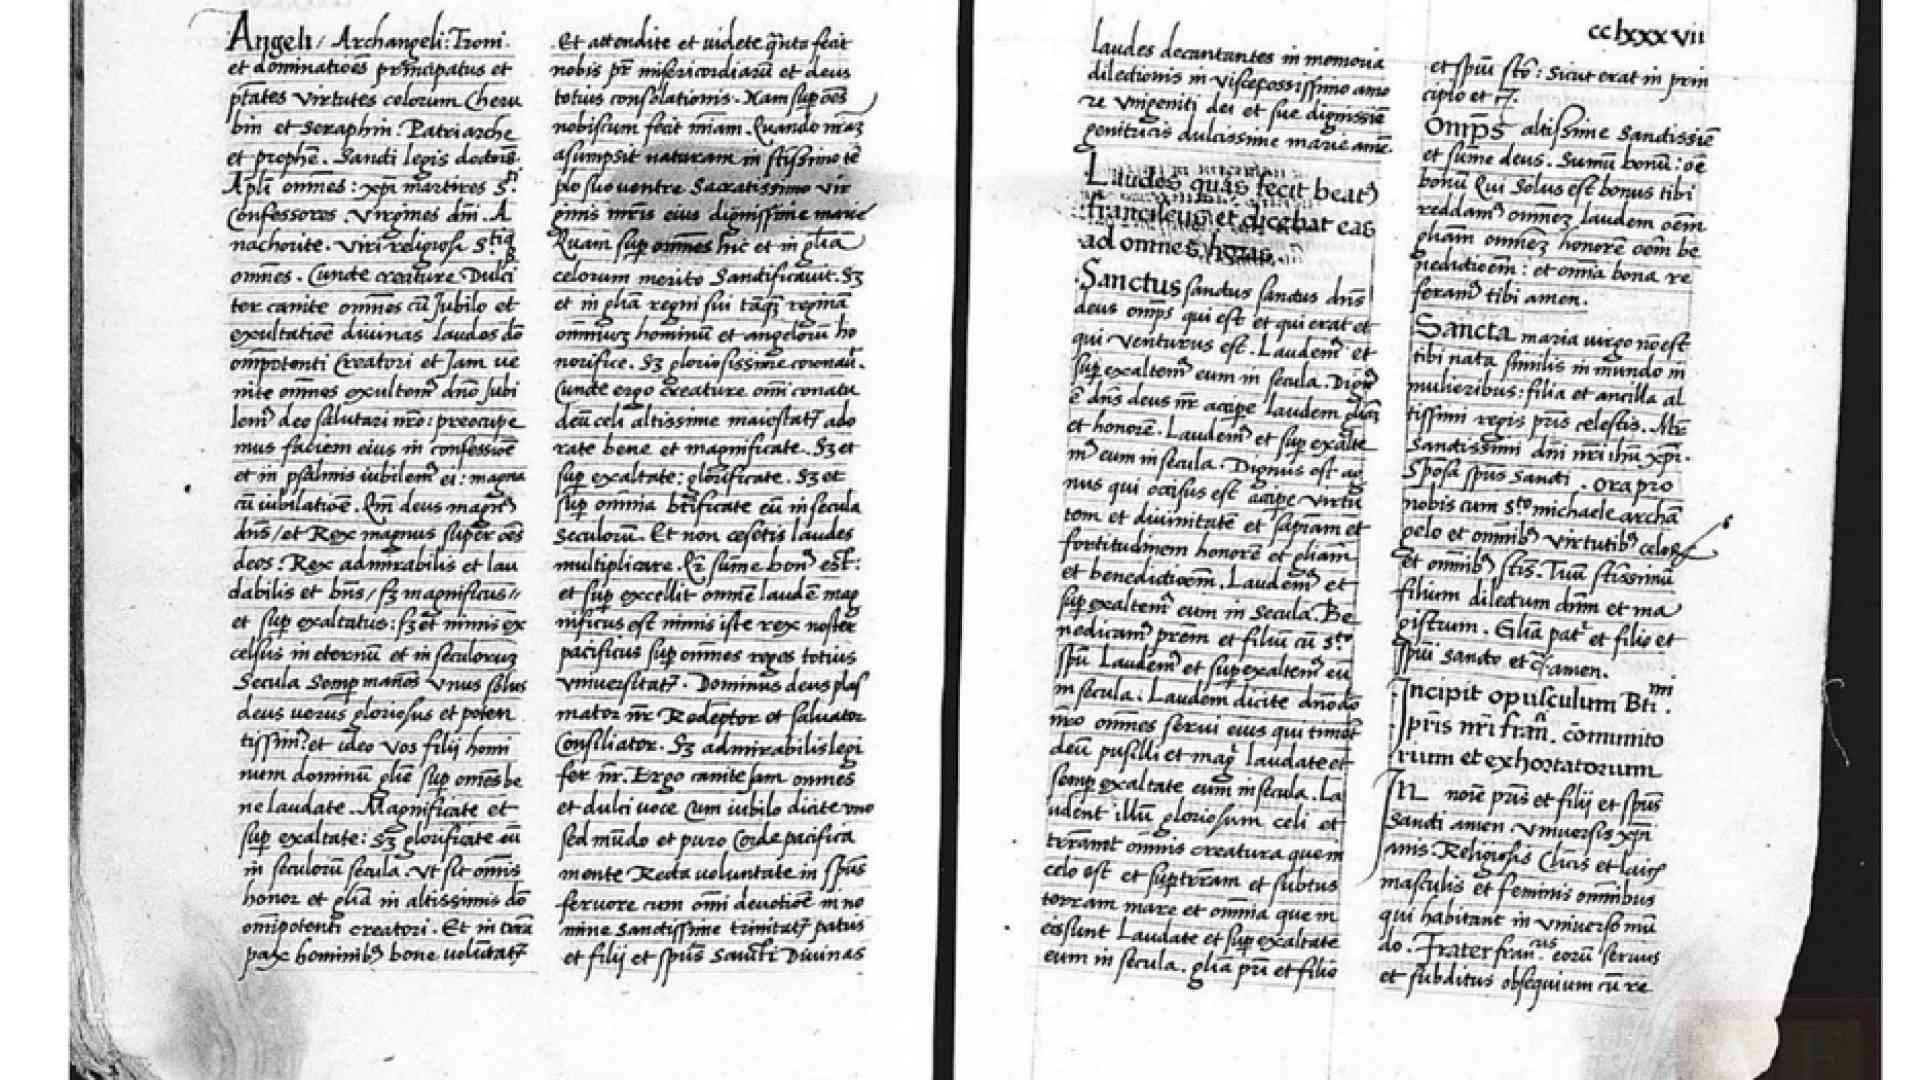 Angeli / Archangeli: Troni.
et dominatiões prīncipatus et
ptātes virtutes celorum Cheru
bin et Seraphin. Patriarche
et prophē. Sancti legis doctors̄.
Apli omnes: xpī martires Sti
Confessores. Virgines dnī. A
nachorite. Viri religiosi Stiq
omnes. Cuncte creature Dulci
ter canite omnes cū Jubilo et
exultatiōe divinas laudes dō
omīpotenti Creatori et Jam ve
nite omnes exultemꝰ dn̄o Jubi
lemꝰ deo salutari nr̄o: preocupe
mus faciem eius in confessiōe
et in psalmis iubilemꝰ ei: magna
cū iubilatiōe. Qm̄ deus magnꝰ
dn̄s / et Rex magnus super oēs
deos: Rex admirabilis et lau
dabilis et bn̄s / sꝫ magnificus //
et suꝑ exaltatus: sꝫ et nimis ex
celsus in eternū et in seculoruꝫ
Secula Semꝑ manēs Unus solus
deus verus gloriosus et poten
tissimꝰ et ideo vos filij homi
num dominū glīe suꝑ omēs be
ne laudate. Magnificate et
suꝑ exaltate: Sꝫ glorificate eū
in seculorū secula. Ut sit omīs
honor et glīa in altissimis dō
omīpotenti creatori. Et in terra
pax hominibꝰ bone voluntatꝭ
.Et attendite et videte q̄nta fecit
nobis pr̄ misericordiarū et deus
totius consolationis. Nam suꝑ oēs
nobiscum fecit mīam. Quando nr̄aꝫ
asumpsit naturam in stīssimo tē
plo suo ventre Sacratissimo vir
ginis mr̄is eius dignissime marie
Quam suꝑ omnes hic et in glīa
celorum merito Sanctificavit. Sꝫ
et in glīa regni sui tāqꝫ reginā
omniuꝫ hominū et angelorū ho
norifice. Sꝫ gloriosissime coronavt̄.
Cuncte ergo creature omni conatu
deū celi altissime maiestatꝭ ado
rate bene et magnificate. Sꝫ et
suꝑ exaltate: glorificate. Sꝫ et
suꝑ omnia btīficate eū in secula
seculorū. Et non cesetis laudes
multiplicare. Qr̄ sūme bonꝰ est:
et suꝑ excellit omnē laudē mag
nificus est nimis iste rex noster
pacificus suꝑ omnes reges totius
universitatꝭ. Dominus deus plas
mator nr̄ Redēptor et salvator
Consiliator. Sꝫ admirabilis legi
fer nr̄. Ergo canite Jam omnes
et dulci voce Cum iubilo dicite uno
sed mūdo et puro Corde pacifica
mente Recta voluntate in spūs
fervore cum omī devotiōe in no
mine Sanctissime trinitatꝭ patris
et filij et spūs Sancti Divinas
cclxxxvii
laudes decantantes in memoria
dilectionis in viscerosissimo amo
re Unigeniti dei et sue dignissie
genitricis dulcissime marie amē.
Laudes quas fecit beatꝰ
franciscus et dicebat eas
ad omnes horas.
Sanctus sanctus sanctus dn̄s
deus omp̄s qui est et qui erat et
qui venturus est. Laudemꝰ et
suꝑ exaltemꝰ eum in secula. Dignꝰ
ē dn̄s deus nr̄ accipe laudem glīam
et honorē. Laudemꝰ et suꝑ exalte
mꝰ eum in secula. Dignus est ag
nus qui occisus est accipe virtu
tem et divinitatē et sapīam et
fortitudinem honorē et glīam
et benedictiōem. Laudemꝰ et
suꝑ exaltemꝰ eum in secula. Be
nedicamꝰ prēm et filiū cū sto
spū Laudemꝰ et suꝑ exaltemꝰ eū
in secula. Laudem dicite dn̄o dō
nr̄o omnes servi eius qui timēt
deū pusilli et magi laudate et
semꝑ exaltate eum in secula. La
udent illū gloriosum celi et
terramt̄ omnis creatura quem
celo est et suꝑ terram et subtus
terram mare et omnia que in
eis sunt Laudate et suꝑ exaltate
eum in secula. glīa pri et filio
et spiū sto: Sicut erat in prin
cipio et cꝭ.
Omp̄s altissime Sanctissiē
et sūme deus. Sumū bonū: oē
bonū Qui Solus est bonus tibi
reddamꝰ omnēꝫ laudem oēm
glīam omnēꝫ honorē oēm be
nedictiōem: et omīa bona re
feramꝰ tibi amen.
Sancta maria virgo nō est
tibi nata similis in mundo in
mulieribus: filia et ancilla al
tissimi regis pr̄is celestis. Mr̄
Sanctissimi dn̄i nr̄i ihū xpī.
Sposa spūs Sancti. ora pro
nobis cum sto michaele archā
gelo et omnibꝰ virtutibꝰ celorꝫ
et omnibꝰ stīs. Tuū stīssimū
filium dilectum dnm̄ et ma
gistrum. Glīa patī et filio et
spiū Sancto et cꝭ. amen.
Incipit opusculum Bti.mi
pr̄is nr̄i fran̄. cōmunito
rium et exhortatorium
IN noīe pr̄is et filij et spūs
Sancti amen. Universis xpīī
anis Religiosis Clīcis et laicis
masculis et feminis omnibus
qui habitant in universo mū
do. Frater franus. eorū servus
et subditus obsequium cū re